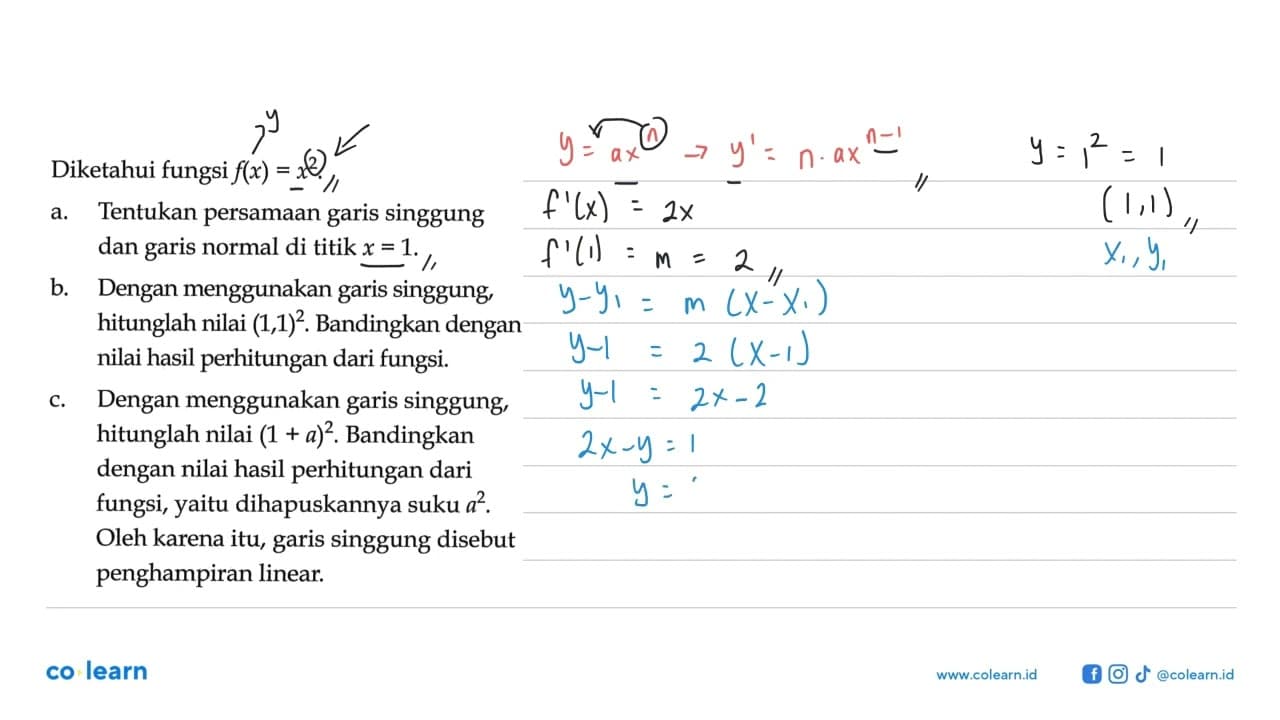 y
Diketahui fungsi f(x) = x².
a. Tentukan persamaan garis singgung
dan garis normal di titik x = 1.
b. Dengan menggunakan garis singgung,
hitunglah nilai (1,1)². Bandingkan dengan
nilai hasil perhitungan dari fungsi.
c. Dengan menggunakan garis singgung,
hitunglah nilai (1 + a)². Bandingkan
dengan nilai hasil perhitungan dari
fungsi, yaitu dihapuskannya suku a².
Oleh karena itu, garis singgung disebut
penghampiran linear.
y = axⁿ → y' = n . axⁿ⁻¹
f'(x) = 2x
f'(1) = m = 2
y-y₁ = m (x-x₁)
y-1 = 2 (x-1)
y-1 = 2x-2
2x-y = 1
y =
y = 1² = 1
(1,1)
x₁, y₁
co learn
www.colearn.id
@colearn.id